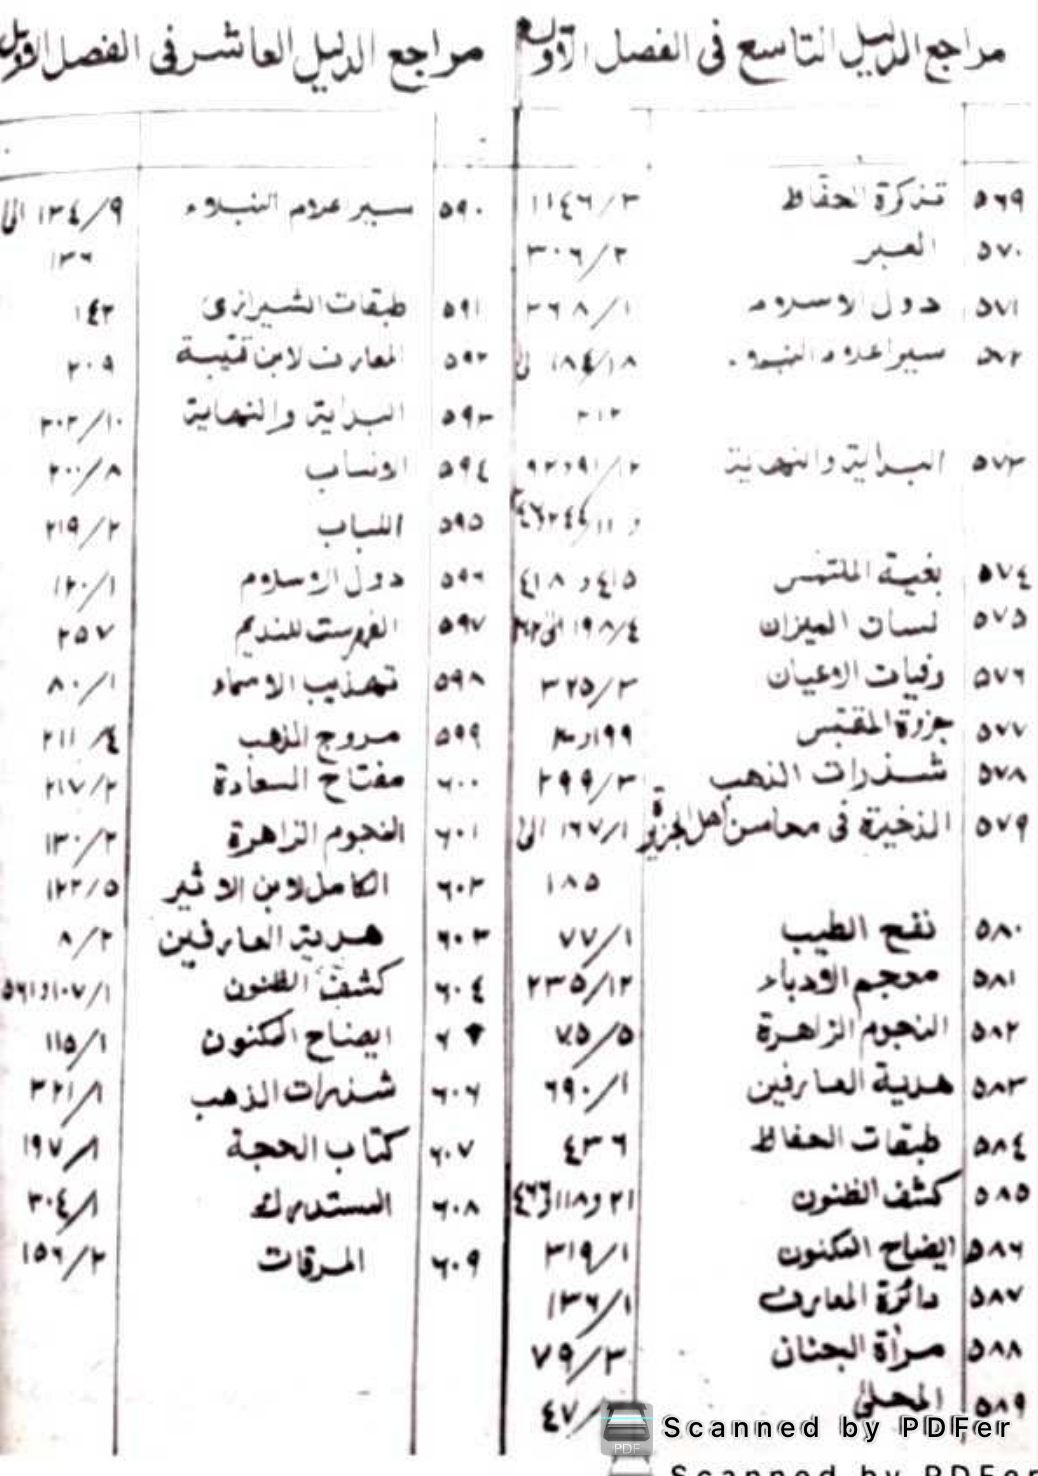 مراجع الدليل التاسع في الفصل الأول
٥٦٩ تذكرة الحفاظ ١١٤٦/٣
٥٧٠ العبر ٣٠٦/٢
٥٧١ دول الاسلام ٢٦٨/١
٥٧٢ سير اعلام النبلاء ١٨٤/١٨ الى
٢١٢
٥٧٣ البداية والنهاية ٩١/١٢ و٩٢
٥٧٤ بغية الملتمس ٤١٥ و ٤١٨
٥٧٥ لسان الميزان ١٩٨/٤ الى
٥٧٦ وفيات الاعيان ٣٢٥/٣
٥٧٧ جزوة المقتبس ١٩٩
٥٧٨ شذرات الذهب ٢٩٩/٣
٥٧٩ الذخيرة في محاسن أهل الجزيرة ١٦٧/١ الى
١٨٥
٥٨٠ نفح الطيب ٧٧/١
٥٨١ معجم الادباء ٢٣٥/١٢
٥٨٢ النجوم الزاهرة ٧٥/٥
٥٨٣ هدية العارفين ٦٩٠/١
٥٨٤ طبقات الحفاظ ٤٣٦
٥٨٥ كشف الظنون ٢١ و١١٨ و٤٦٦
٥٨٦ ايضاح المكنون ٣١٩/١
٥٨٧ دائرة المعارف ١٣٦/١
٥٨٨ مرآة الجنان ٧٩/٣
٥٨٩ المحلى
مراجع الدليل العاشر في الفصل الأول
٥٩٠ سير علام النبلاء ١٣٤/٩ الى
١٣٦
٥٩١ طبقات الشيرازى ١٤٢
٥٩٢ المعارف لابن قتيبة ٢٠٩
٥٩٣ البداية والنهاية ٢٠٢/١٠
٥٩٤ الانساب ٢٠٠/٨
٥٩٥ اللباب ٢١٩/٢
٥٩٦ دول الاسلام ١٢٠/١
٥٩٧ الفهرست للنديم ٢٥٧
٥٩٨ تهذيب الاسماء ٨٠/١
٥٩٩ مروج الذهب ٢١١/٤
٦٠٠ مفتاح السعادة ٢١٧/٢
٦٠١ النجوم الزاهرة ١٣٠/٢
٦٠٢ الكامل لابن الاثير ١٢٢/٥
٦٠٣ هدية العارفين ٨/٢
٦٠٤ كشف الظنون ١٠٧/١ و٥٦١
ايضاح المكنون ١١٥/١
٦٠٦ شذرات الذهب ٣٢١/١
٦٠٧ كتاب الحجة ١٩٧/١
٦٠٨ المستدرك ٣٠٤/١
٦٠٩ المرقات ١٥٦/٢
Scanned by PDFer
Scanned by PDFer